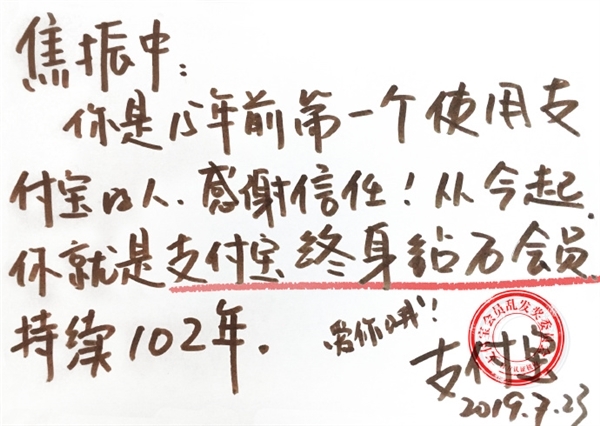 焦振中:
你是15年前第一个使用支
付宝的人.感谢信任!从今起.
你就是支付宝终身钻石会员.
持续102年.
爱你哦!
支付宝
宝会员乱发奖委
2019.7.23